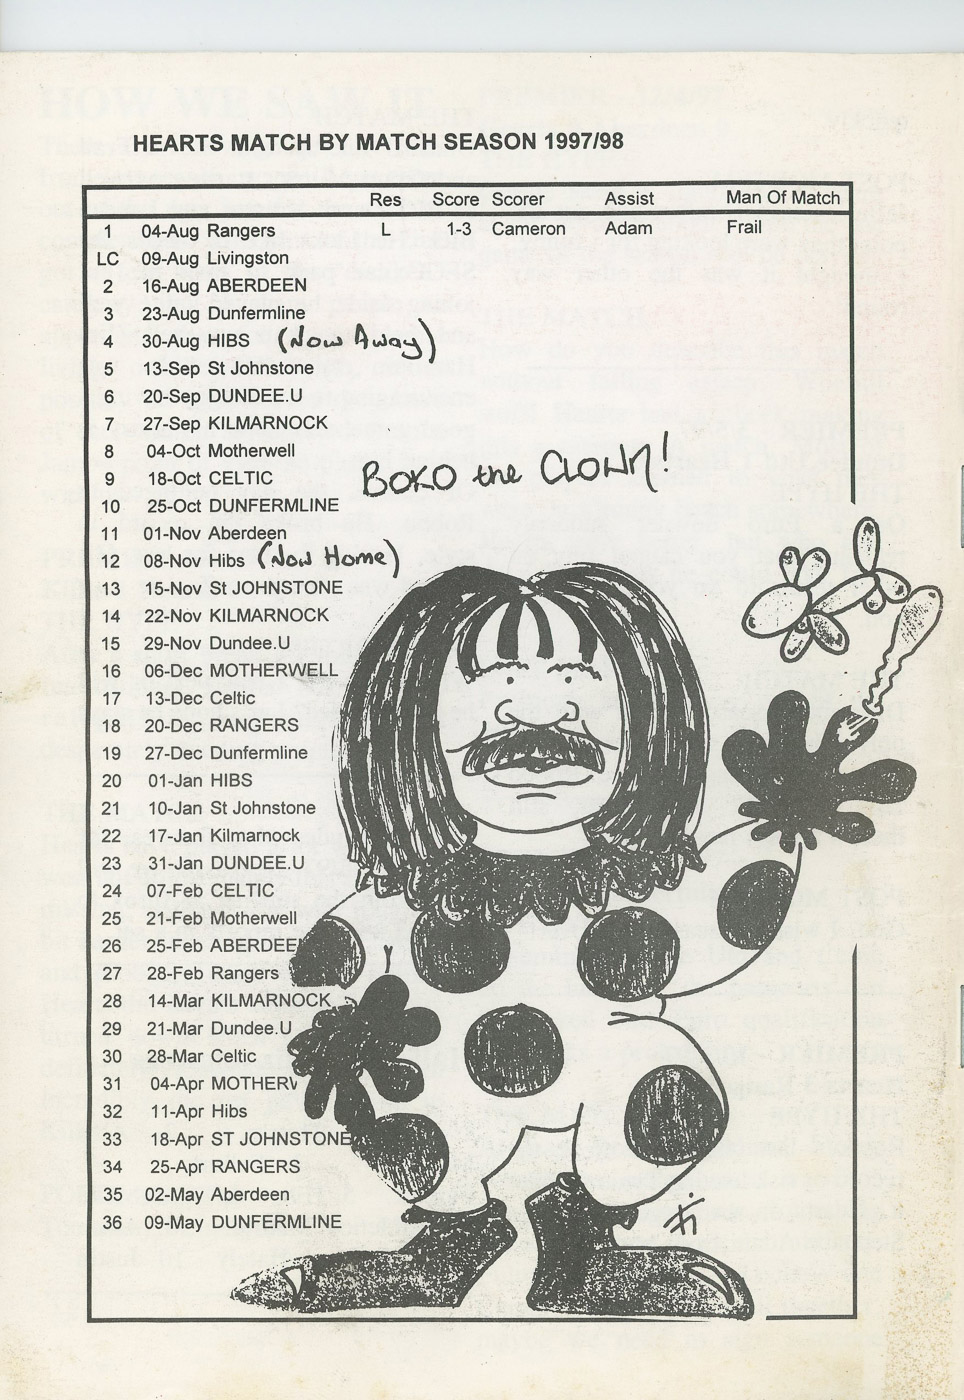 HEARTS MATCH BY MATCH SEASON 1997/98
Res Score Scorer Assist Man Of Match
1 04-Aug Rangers L 1-3 Cameron Adam Frail
LC 09-Aug Livingston
2 16-Aug ABERDEEN
3 23-Aug Dunfermline
4 30-Aug HIBS (Now Away)
5 13-Sep St Johnstone
6 20-Sep DUNDEE.U
7 27-Sep KILMARNOCK
8 04-Oct Motherwell
9 18-Oct CELTIC
BOKO the CLOWN!
10 25-Oct DUNFERMLINE
11 01-Nov Aberdeen
12 08-Nov Hibs (Now Home)
13 15-Nov St JOHNSTONE
14 22-Nov KILMARNOCK
15 29-Nov Dundee.U
16 06-Dec MOTHERWELL
17 13-Dec Celtic
18 20-Dec RANGERS
19 27-Dec Dunfermline
20 01-Jan HIBS
21 10-Jan St Johnstone
22 17-Jan Kilmarnock
23 31-Jan DUNDEE.U
24 07-Feb CELTIC
25 21-Feb Motherwell
26 25-Feb ABERDEE
27 28-Feb Rangers
28 14-Mar KILMARNOCK
29 21-Mar Dundee.U
30 28-Mar Celtic
31 04-Apr MOTHERW
32 11-Apr Hibs
33 18-Apr ST JOHNSTONE
34 25-Apr RANGERS
35 02-May Aberdeen
36 09-May DUNFERMLINE